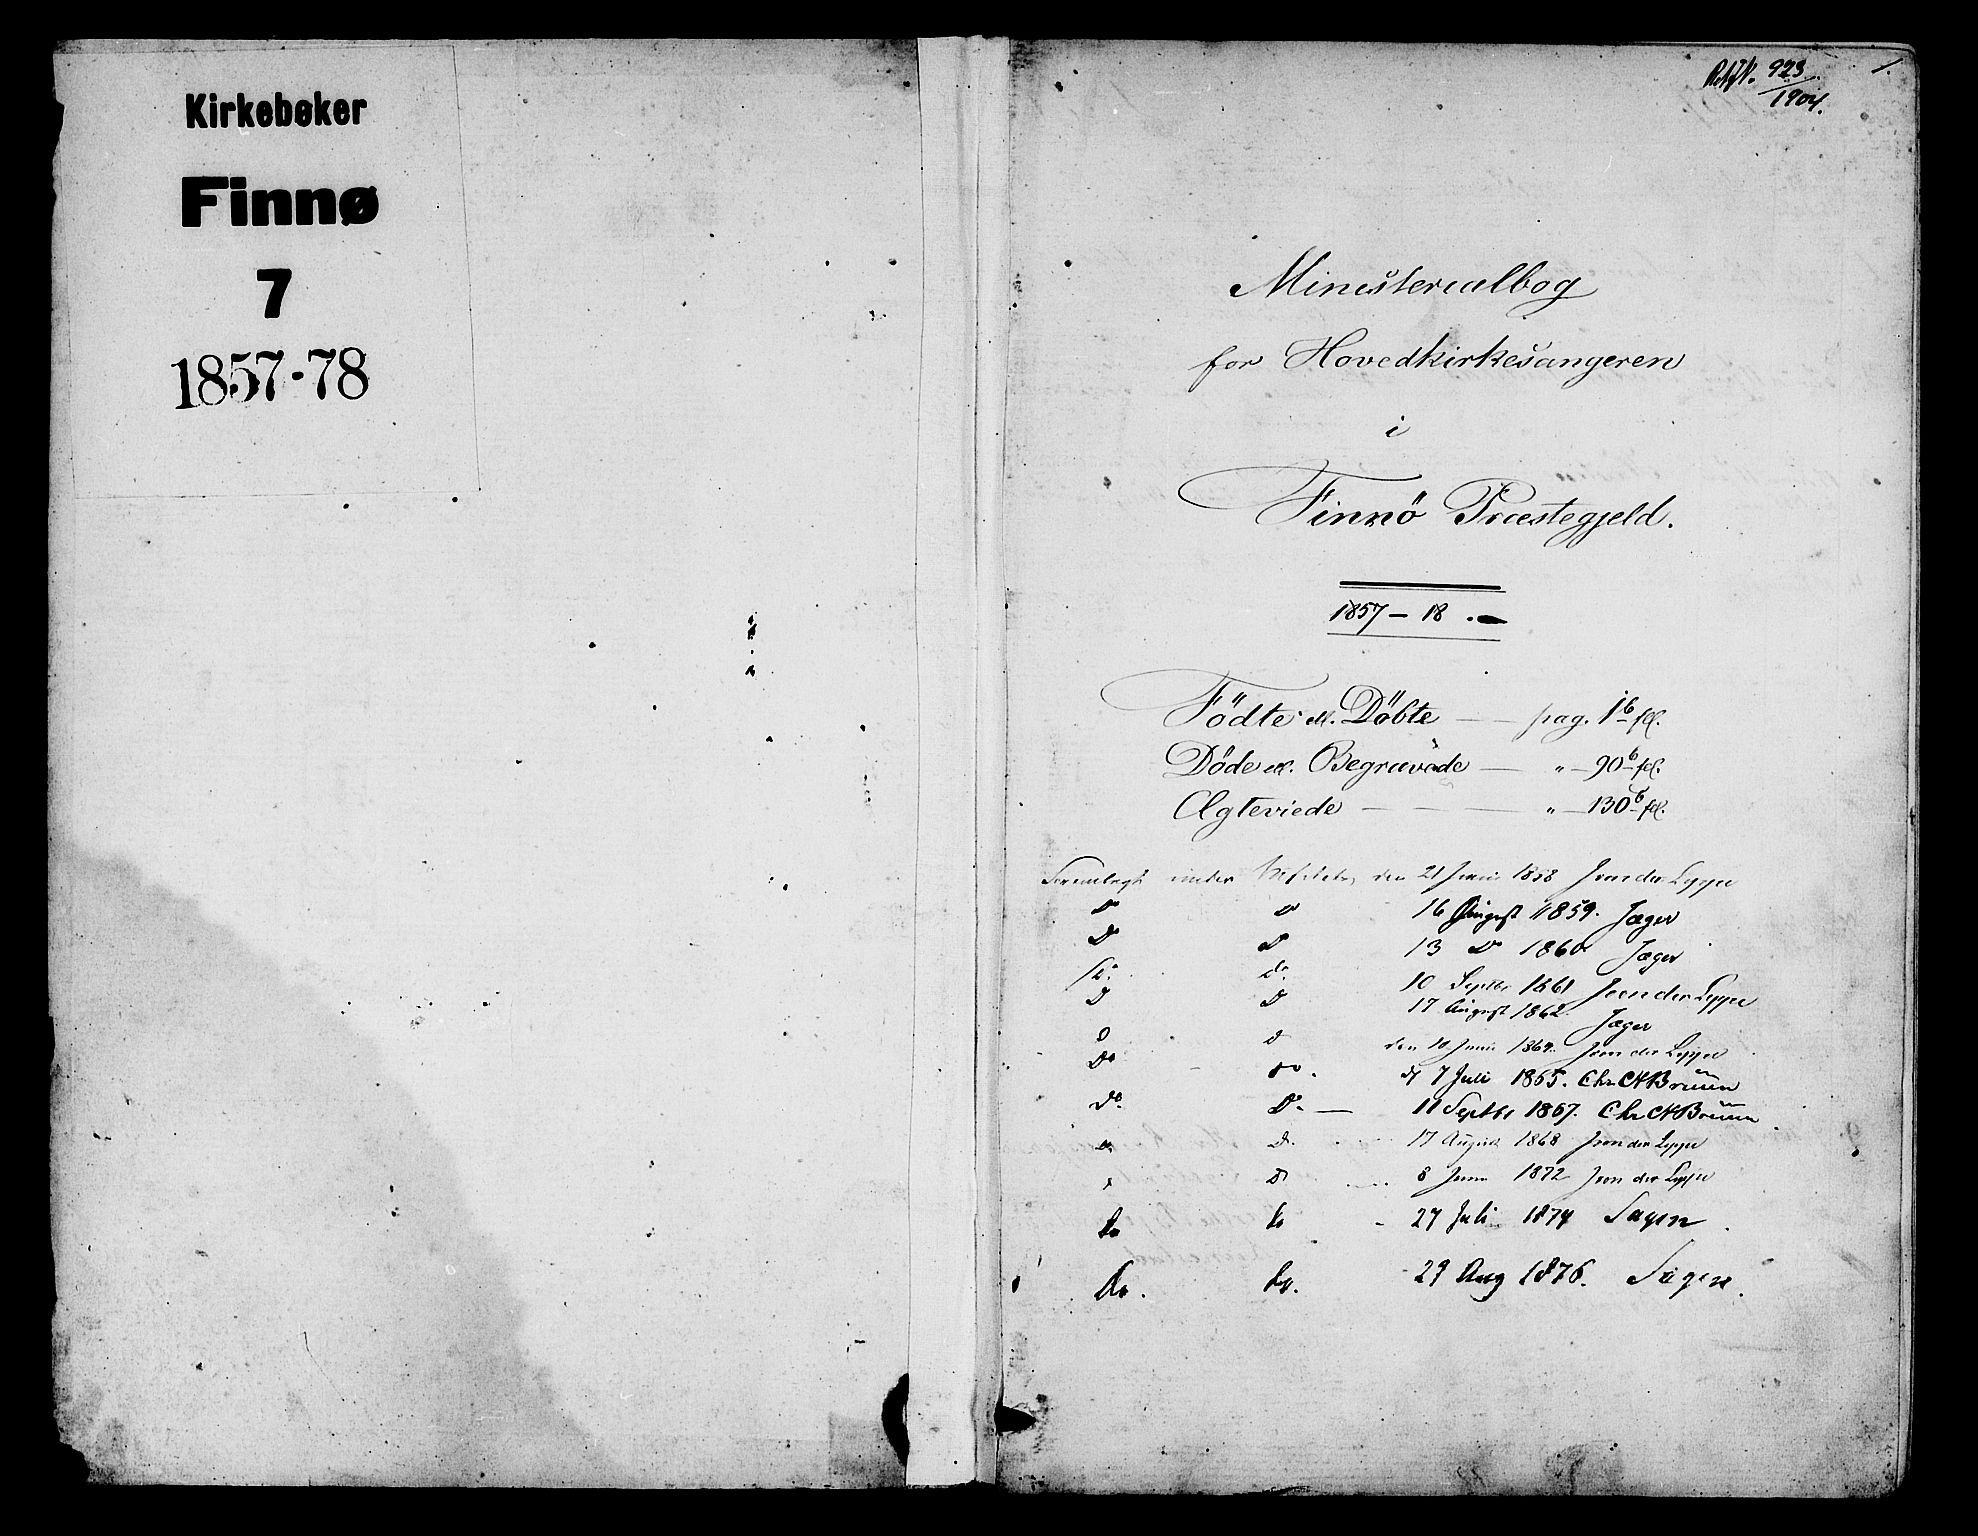 Kirkebøker
Finnø
7
1857-78
923
1904.
1.
Ministerialbog
for Hovedkirkesangeren
i
Finnö Præstegjeld.
1857 – 18
Födte & Döbte — pag. 1 b fl.
Döde & Begravede — " — 90 b fl.
Ægteviede — — — " — 130 b fl.
Fremlagt under Visitats den 21 Juni 1858 Jens der Lippe
Do Do 16 August 1859. Jæger
Do Do 13 Do 1860 Jæger
do. do. 10 Septbr 1861 Jens der Lippe
D D 17 August 1862. Jæger
D D den 10 Juni 1864. Jens der Lippe
Do Do. d 7 Juli 1865. Chr. Bruun
Do. Do. — 11 Septbr 1867. Chr. Bruun
D. D. 17 August 1868 Jens der Lippe
D 8 Juni 1872 Jens der Lippe
Do Do - 27 Juli 1874 Sagen
Do. Do. 29 Aug 1876. Sagen.